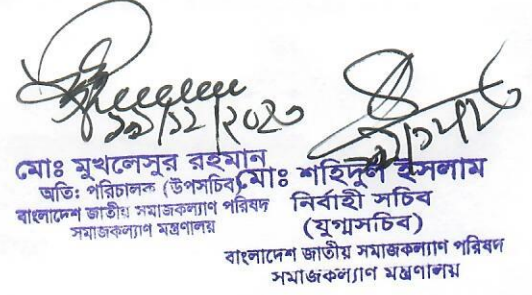 ১৯/১২/২০২৩
মোঃ মুখলেসুর রহমান
অতিঃ পরিচালক (উপসচিব)
বাংলাদেশ জাতীয় সমাজকল্যাণ পরিষদ
সমাজকল্যাণ মন্ত্রণালয়
মোঃ শহিদুল ইসলাম
নির্বাহী সচিব
(যুগ্মসচিব)
বাংলাদেশ জাতীয় সমাজকল্যাণ পরিষদ
সমাজকল্যাণ মন্ত্রণালয়